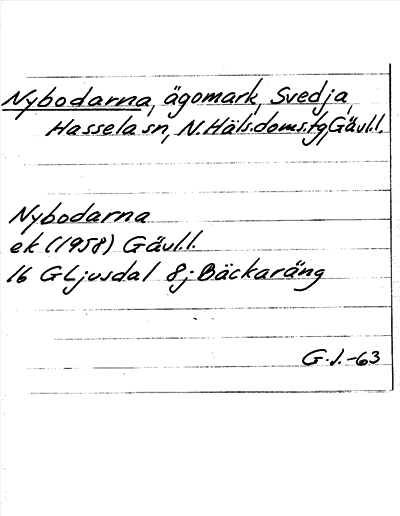 Nybodarna, ägomark, Svedja,
Hassela sn, N. Häls. doms. tg, Gävl.l.
Nybodarna
ek (1958) Gävl.l.
16 G Ljusdal 8j Bäckaräng
G.J.-63